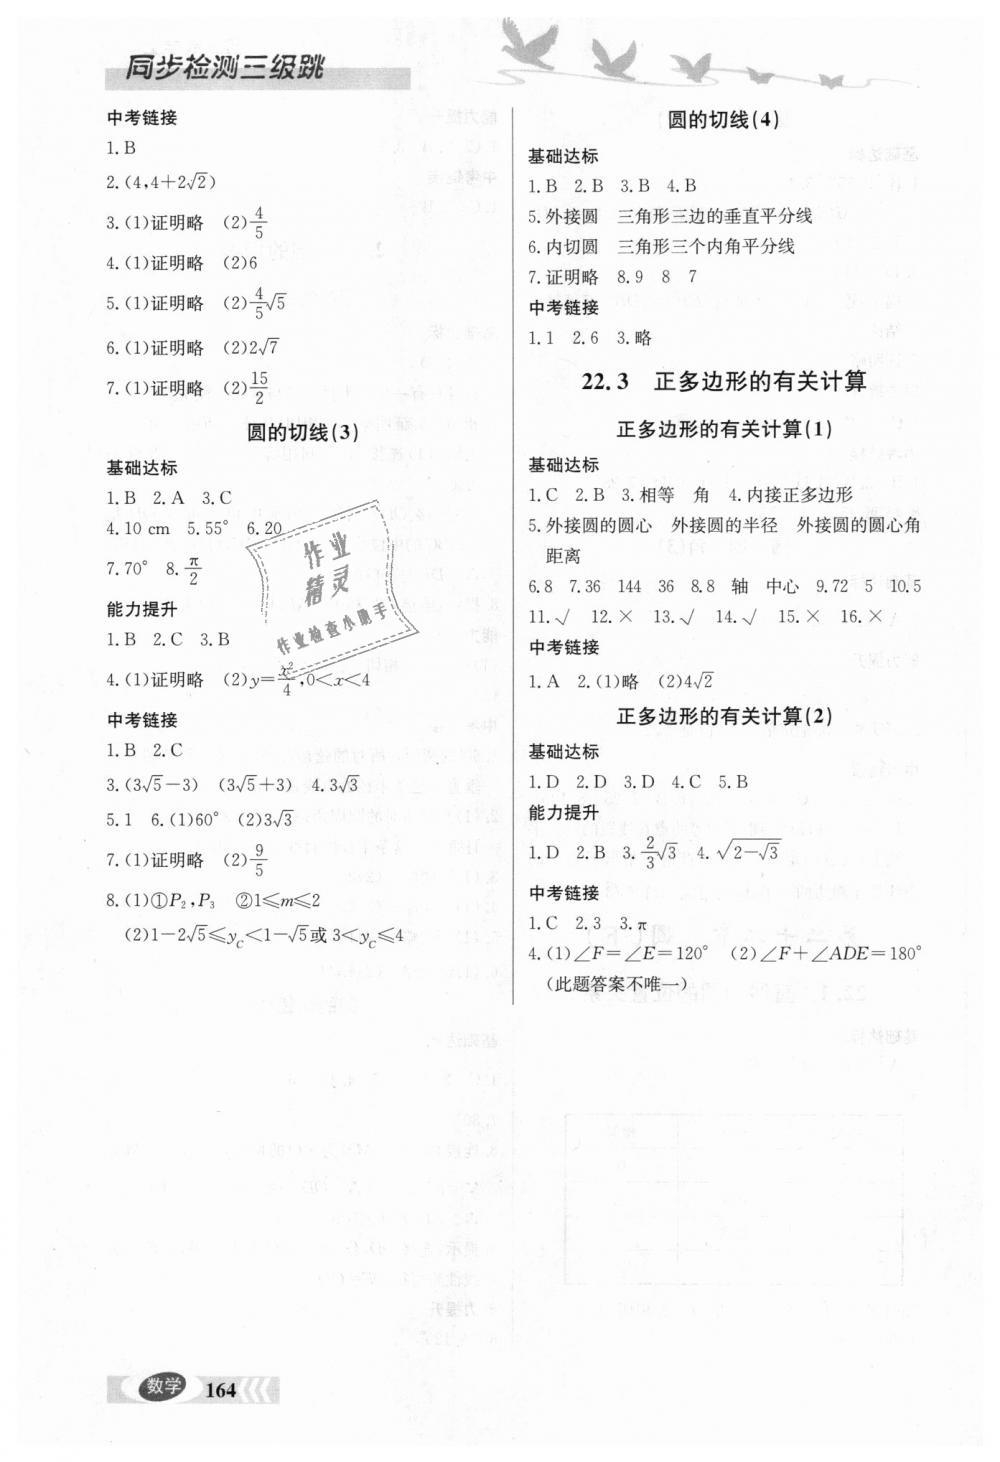 同步检测三级跳
中考链接
1.B
2.(4,4+2√2)
3.(1)证明略 (2)4/5
4.(1)证明略 (2)6
5.(1)证明略 (2)4/5√5
6.(1)证明略 (2)2√7
7.(1)证明略 (2)15/2
圆的切线(3)
基础达标
1.B 2.A 3.C
4.10 cm 5.55° 6.20
7.70° 8.π/2
能力提升
1.B 2.C 3.B
4.(1)证明略 (2)y=x²/4,0<x<4
中考链接
1.B 2.C
3.(3√5-3) (3√5+3) 4.3√3
5.1 6.(1)60° (2)3√3
7.(1)证明略 (2)9/5
8.(1)①P₂,P₃ ②1≤m≤2
(2)1-2√5≤y_C<1-√5或3<y_C≤4
作业
精灵
作业检查小助手
圆的切线(4)
基础达标
1.B 2.B 3.B 4.B
5.外接圆 三角形三边的垂直平分线
6.内切圆 三角形三个内角平分线
7.证明略 8.9 8 7
中考链接
1.1 2.6 3.略
22.3 正多边形的有关计算
正多边形的有关计算(1)
基础达标
1.C 2.B 3.相等 角 4.内接正多边形
5.外接圆的圆心 外接圆的半径 外接圆的圆心角
距离
6.8 7.36 144 36 8.8 轴 中心 9.72 5 10.5
11.√ 12.× 13.√ 14.√ 15.× 16.×
中考链接
1.A 2.(1)略 (2)4√2
正多边形的有关计算(2)
基础达标
1.D 2.D 3.D 4.C 5.B
能力提升
1.D 2.B 3.2/3√3 4.√(2-√3)
中考链接
1.C 2.3 3.π
4.(1)∠F=∠E=120° (2)∠F+∠ADE=180°
(此题答案不唯一)
数学 164